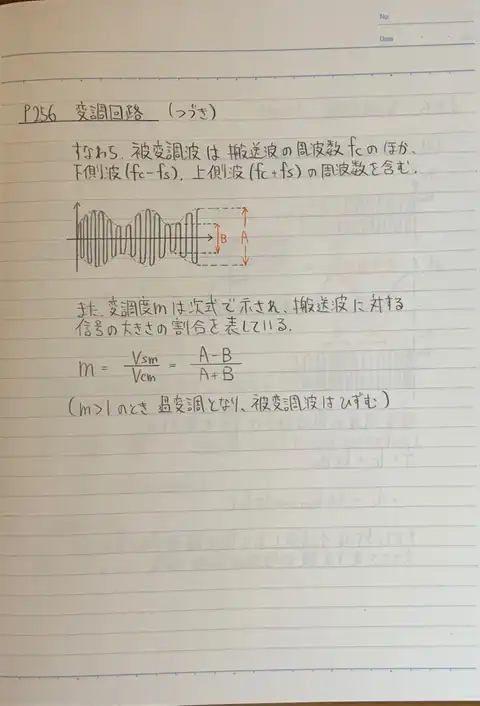 No.
Date
P256 変調回路 (つづき)
すなわち、被変調波は搬送波の周波数fcのほか、
下側波(fc-fs), 上側波(fc+fs)の周波数を含む.
B
A
また、変調度mは次式で示され、搬送波に対する
信号の大きさの割合を表している.
m = Vsm/Vcm = A-B/A+B
(m>1のとき過変調となり、被変調波はひずむ)